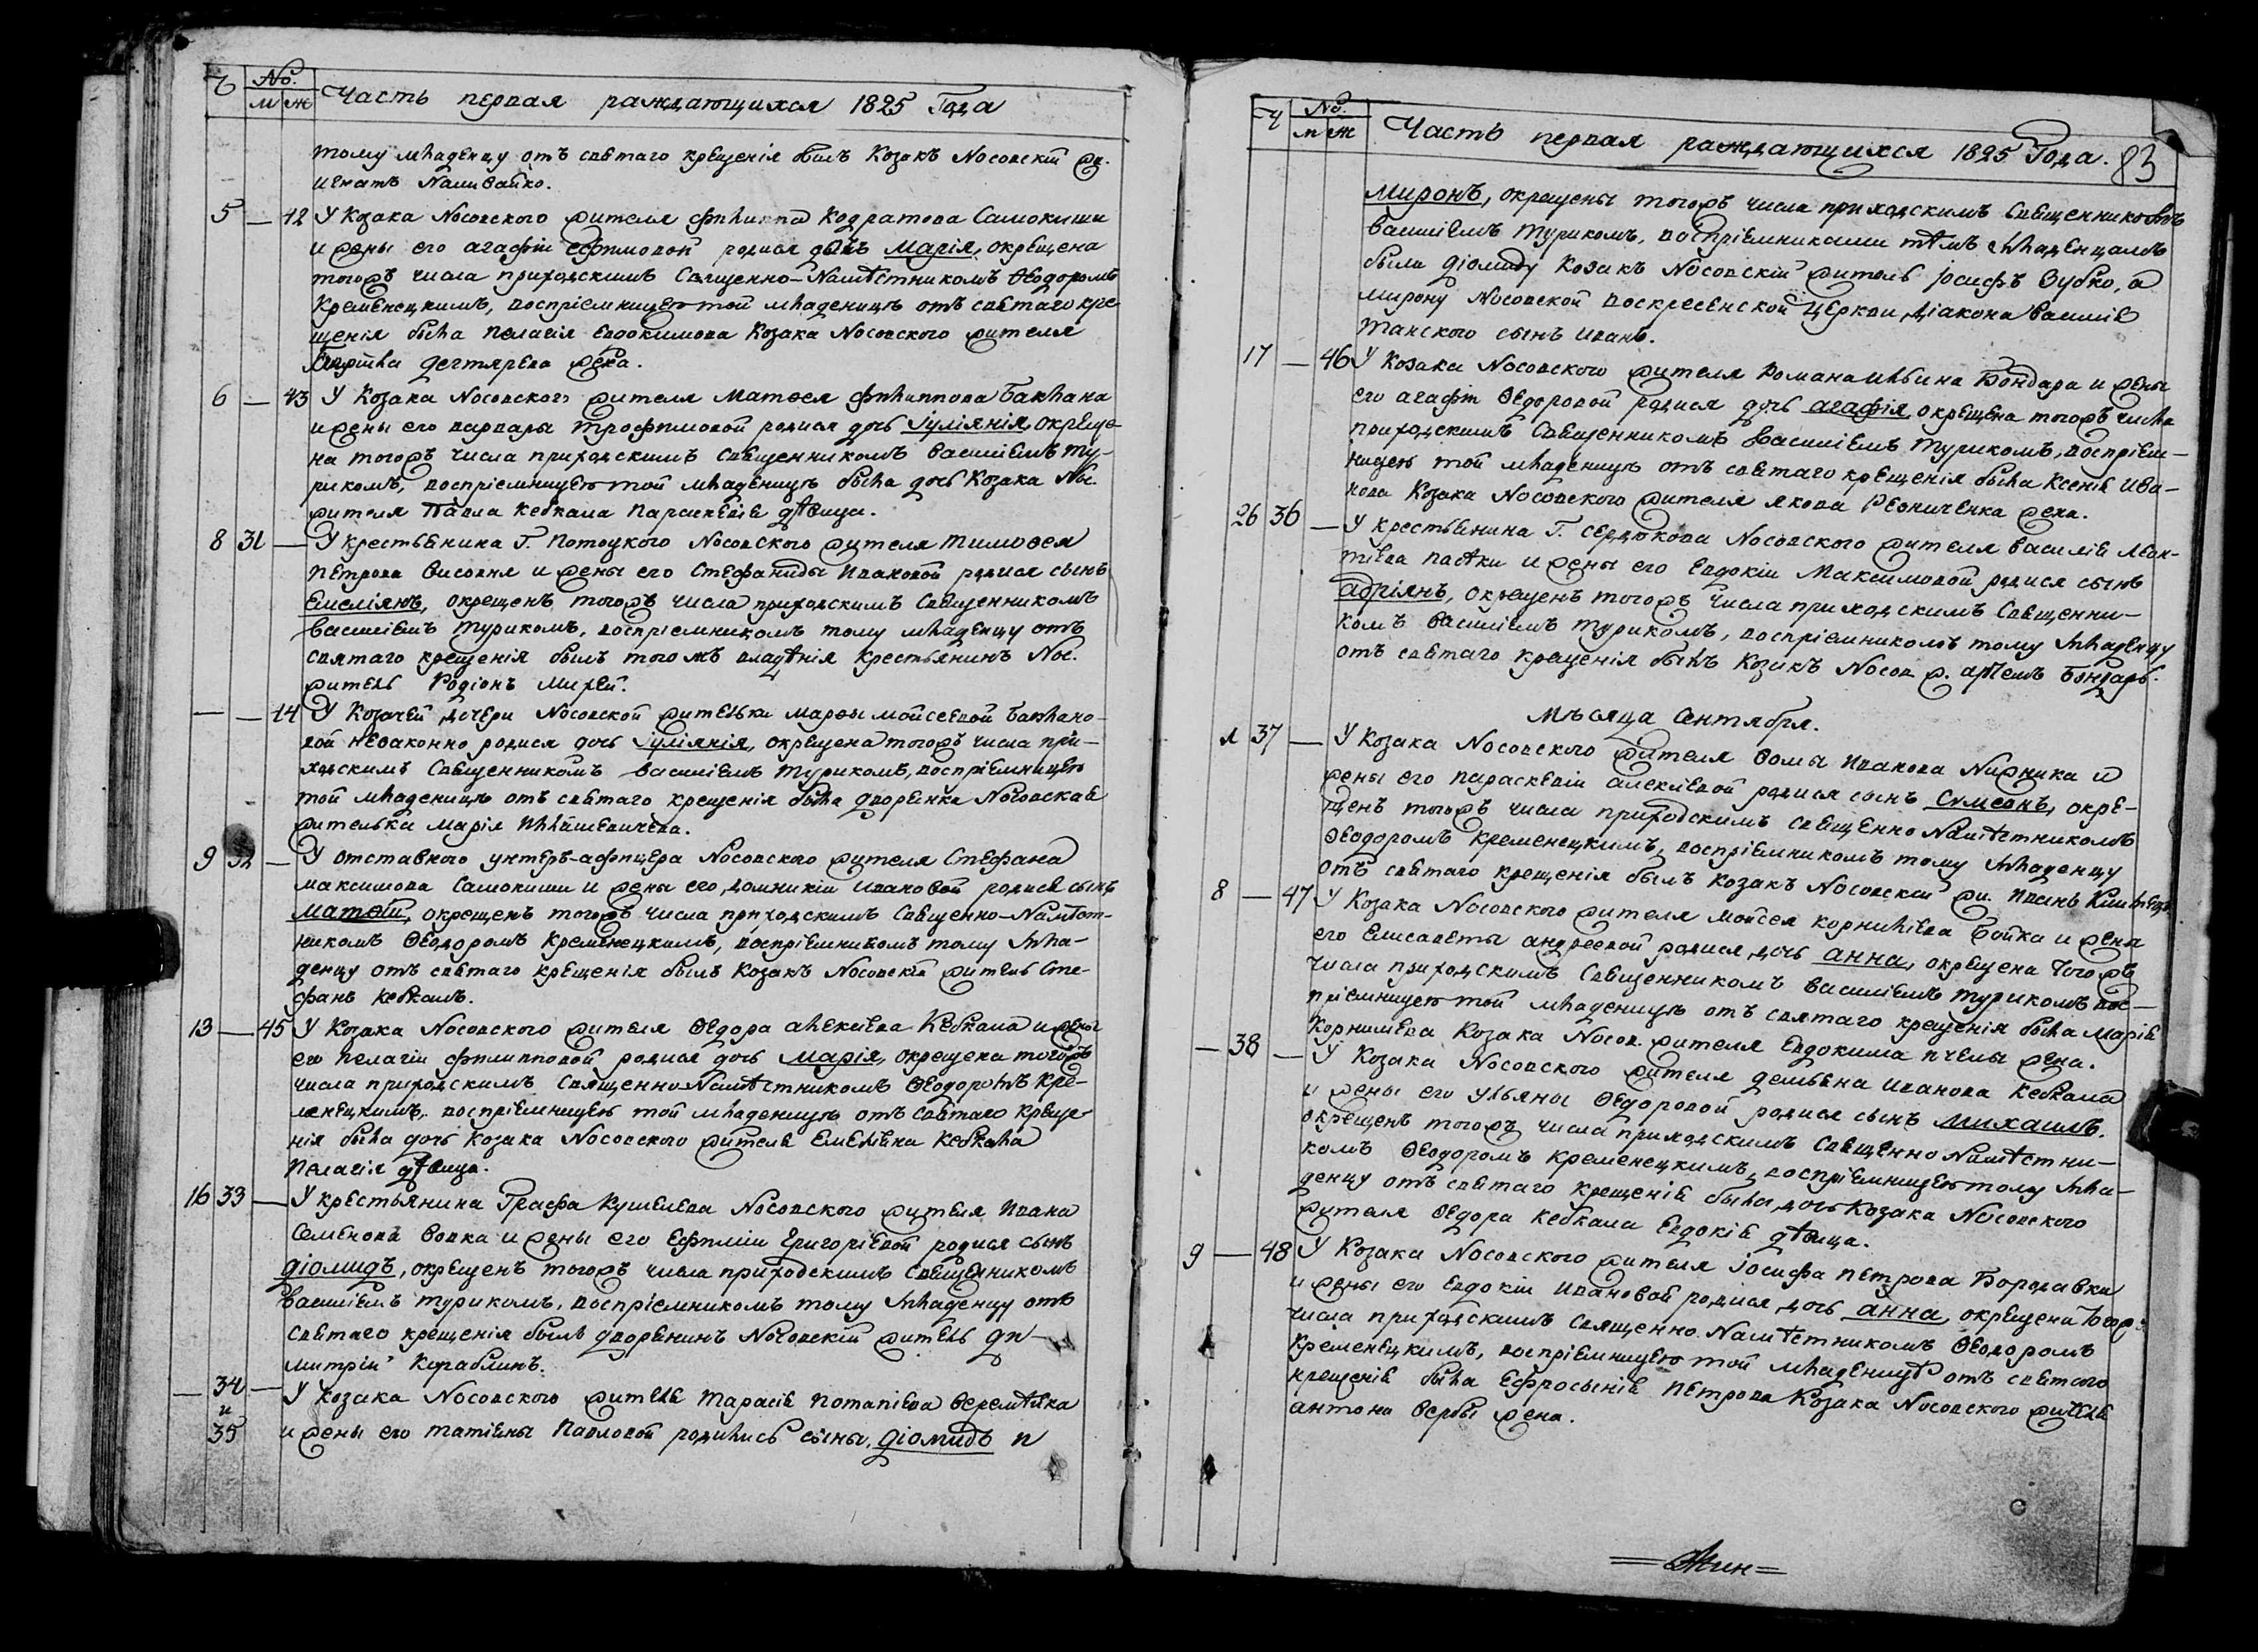 Ч №. М Ж Часть первая раждающихся 1825 Года
тому младенцу отъ святаго крещенія былъ Козакъ Носовскій жи.
Игнатъ Наливайко.
5 — 42 У Козака Носовского жителя Филиппа Кодратова Самокиши
и жены его Агафіи Ефимовой родися дочь Марія, окрещена
тогожъ числа приходскимъ Священно-Намѣстникомъ Ѳеодоромъ
Кременецкимъ, воспріемницею той младеницѣ отъ святаго кре
щенія была Пелагія Евдокимова Козака Носовского жителя
Дегтярева жена.
6 — 43 У Козака Носовского жителя Матѳея Филиппова Баклана
и жены его Варвары Трофимовой родися дочь Іуліянія, окреще-
на тогожъ числа приходскимъ Священникомъ Василіемъ Ту-
рикомъ, воспріемницею той младеницѣ была дочь Козака Нос.
жителя Павла Кебкала Параскевія дѣвица.
8 31 — У крестьянина Г. Потоцкого Носовского жителя Тимоѳея
Петрова Висовня и жены его Стефаниды Ивановой родися сынъ
Емеліянъ, окрещенъ тогожъ числа приходскимъ Священникомъ
Василіемъ Турикомъ, воспріемникомъ тому младенцу отъ
святаго крещенія былъ тогожъ владѣнія крестьянинъ Нос.
житель Родіонъ Мирей.
— — 44 У Козачей дочери Носовской жительки Марѳы Мойсеевой Баклано-
вой незаконно родися дочь Іуліянія, окрещена тогожъ числа при-
ходскимъ Священникомъ Василіемъ Турикомъ, воспріемницею
той младеницѣ отъ святаго крещенія была дворянка Носовская
жителька Марія
9 32 — У отставного унтеръ-афицера Носовского жителя Стефана
Максимова Самокиши и жены его Домникіи Ивановой родися сынъ
Матѳій, окрещенъ тогожъ числа приходскимъ Священно-Намѣст-
никомъ Ѳеодоромъ Кременецкимъ, воспріемникомъ тому мла-
денцу отъ святаго крещенія былъ Козакъ Носовскій житель Сте-
фанъ Кебкалъ.
13 — 45 У Козака Носовского жителя Ѳедора Алексѣева Кебкала и жены
его Пелагіи Филипповой родися дочь Марія, окрещена тогожъ
числа приходскимъ Священно-Намѣстникомъ Ѳеодоромъ Кре-
менецкимъ, воспріемницею той младеницѣ отъ святаго креще-
нія была дочь Козака Носовского жителя Емеляна Кебкала
Пелагія дѣвица.
16 33 — У крестьянина Графа Кушелева Носовского жителя Ивана
Семенова Вовка и жены его Ефиміи Григоріевой родися сынъ
Діомидъ, окрещенъ тогожъ числа приходскимъ Священникомъ
Василіемъ Турикомъ, воспріемникомъ тому младенцу отъ
святаго крещенія былъ дворянинъ Носовскій житель Ди-
митрій Кораблинъ.
— 34 и 35 — У Козака Носовского жителя Тарасія Потапіева Веремѣйка
и жены его Татіаны Павловой родились сыны, Діомидъ и
Ч №. М Ж Часть первая раждающихся 1825 Года. 83
Миронъ, окрещены тогожъ числа приходскимъ Священникомъ
Василіемъ Турикомъ, воспріемниками тѣмъ младенцамъ
были Діомиду Козакъ Носовскій житель Іосифъ Зубко, а
Мирону Носовской Воскресенской Церкви Діакона Василія
Танского сынъ Иванъ.
17 — 46 У Козака Носовского жителя Романа Ильина Бондара и жены
его Агафіи Ѳедоровой родися дочь Агафія, окрещена тогожъ числа
приходскимъ Священникомъ Василіемъ Турикомъ, воспріем-
ницею той младеницѣ отъ святаго крещенія была Ксенія Ива-
нова Козака Носовского жителя Якова Резниченка жена.
26 36 — У крестьянина Г. Сердюкова Носовского жителя Василія Леон-
тіева Пасѣки и жены его Евдокіи Максимовой родися сынъ
Адріянъ, окрещенъ тогожъ числа приходскимъ Священни-
комъ Василіемъ Турикомъ, воспріемникомъ тому младенцу
отъ святаго крещенія былъ Козакъ Носов. ж. Артемъ Бондарь.
Мѣсяца Сентября.
1 37 — У Козака Носовского жителя Ѳомы Иванова Нижника и
жены его Параскевіи Алексіевой родися сынъ Сѵмеонъ, окре-
щенъ тогожъ числа приходскимъ Священно Намѣстникомъ
Ѳеодоромъ Кременецкимъ, воспріемникомъ тому младенцу
отъ святаго крещенія былъ Козакъ Носовскій жи. Иванъ
8 — 47 У Козака Носовского жителя Мойсея Корниліева Бойка и жены
его Елисаветы Андреевой родися дочь Анна, окрещена тогожъ
числа приходскимъ Священникомъ Василіемъ Турикомъ вос-
пріемницею той младеницѣ отъ святаго крещенія была Марія
Корниліева Козака Носов. жителя Евдокима Пчелы жена.
— 38 — У Козака Носовского жителя Демьяна Иванова Кебкала
и жены его Ульяны Ѳедоровой родися сынъ Михаилъ,
окрещенъ тогожъ числа приходскимъ Священно Намѣстни-
комъ Ѳеодоромъ Кременецкимъ, воспріемницею тому мла-
денцу отъ святаго крещенія была дочь Козака Носовского
жителя Ѳедора Кебкала Евдокія дѣвица.
9 — 48 У Козака Носовского жителя Іосифа Петрова Бородавки
и жены его Евдокіи Ивановой родися дочь Анна, окрещена тогож
числа приходскимъ Священно Намѣстникомъ Ѳеодоромъ
Кременецкимъ, воспріемницею той младеницѣ отъ святаго
крещенія была Ефросинія Петрова Козака Носовского жителя
Антона Вербы жена.